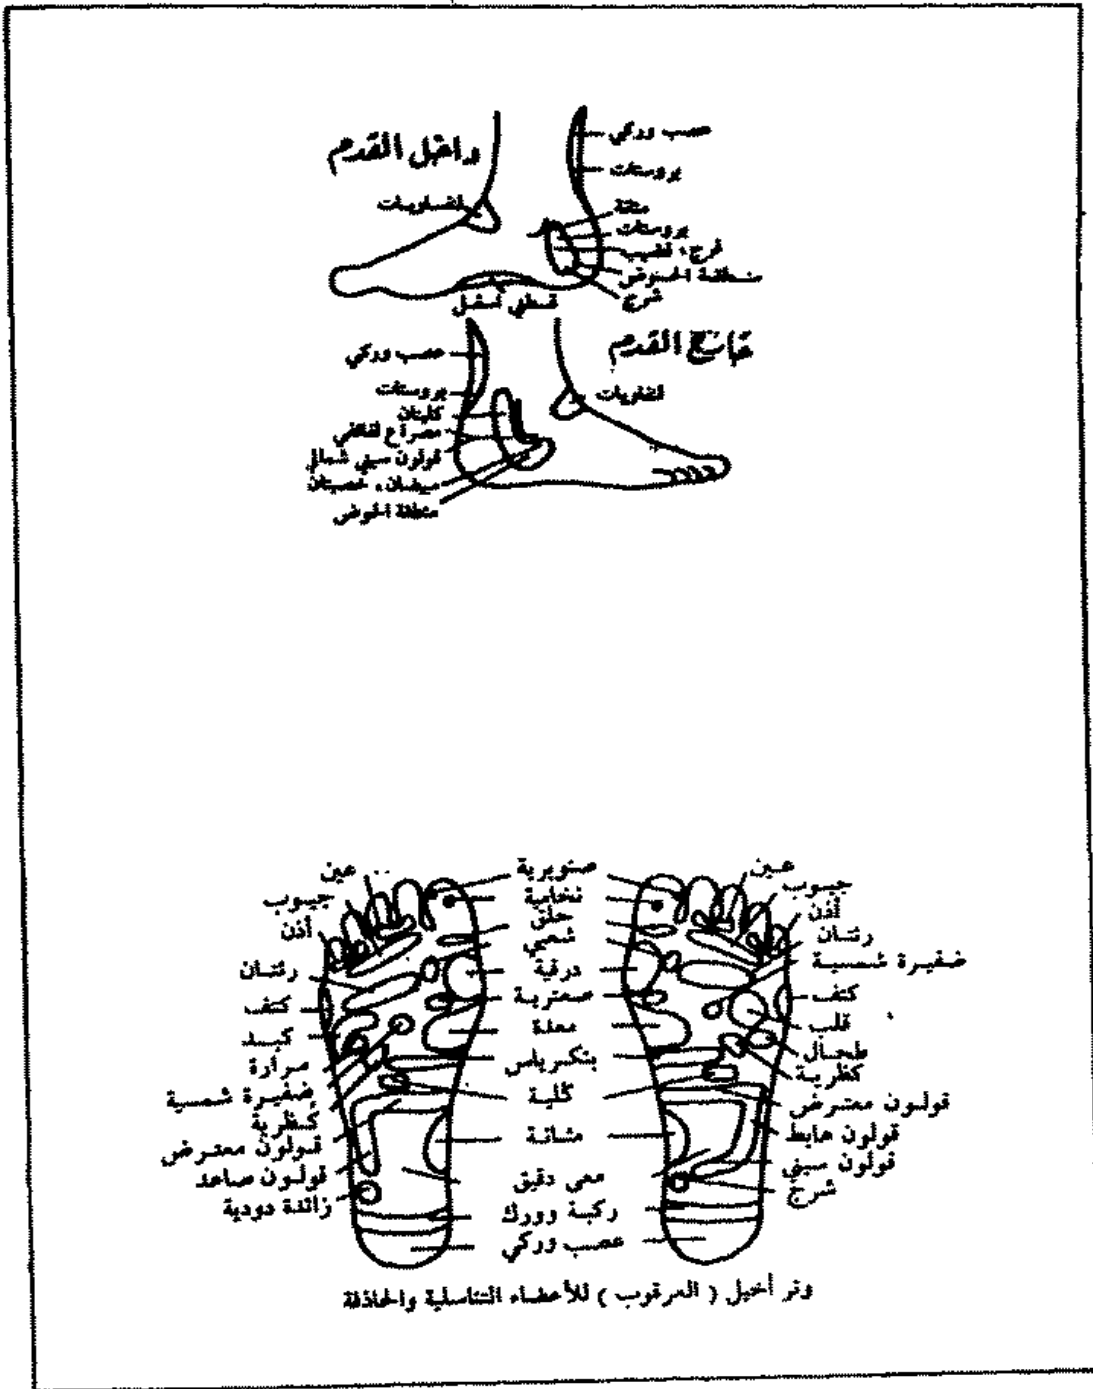 داخل القدم
عصب وركي
بروستات
لمفاويات
مثانة
بروستات
فرج، قضيب
منطقة الحوض
شرج
قطني أسفل
خارج القدم
عصب وركي
لمفاويات
بروستات
كليتان
مصراع لفائفي
قولون سيني شمالي
مبيضان، خصيتان
منطقة الحوض
عين
جيوب
أذن
رئتان
كتف
كبد
مرارة
ضفيرة شمسية
كظرية
قولون معترض
قولون صاعد
زائدة دودية
صنوبرية
نخامية
حلق
شعبي
درقية
صعترية
معدة
بنكرياس
كلية
مثانة
معي دقيق
ركبة وورك
عصب وركي
عين
جيوب
أذن
رئتان
ضفيرة شمسية
كتف
قلب
طحال
كظرية
قولون معترض
قولون هابط
قولون سيني
شرج
وتر أخيل ( العرقوب ) للأعضاء التناسلية والحاذفة